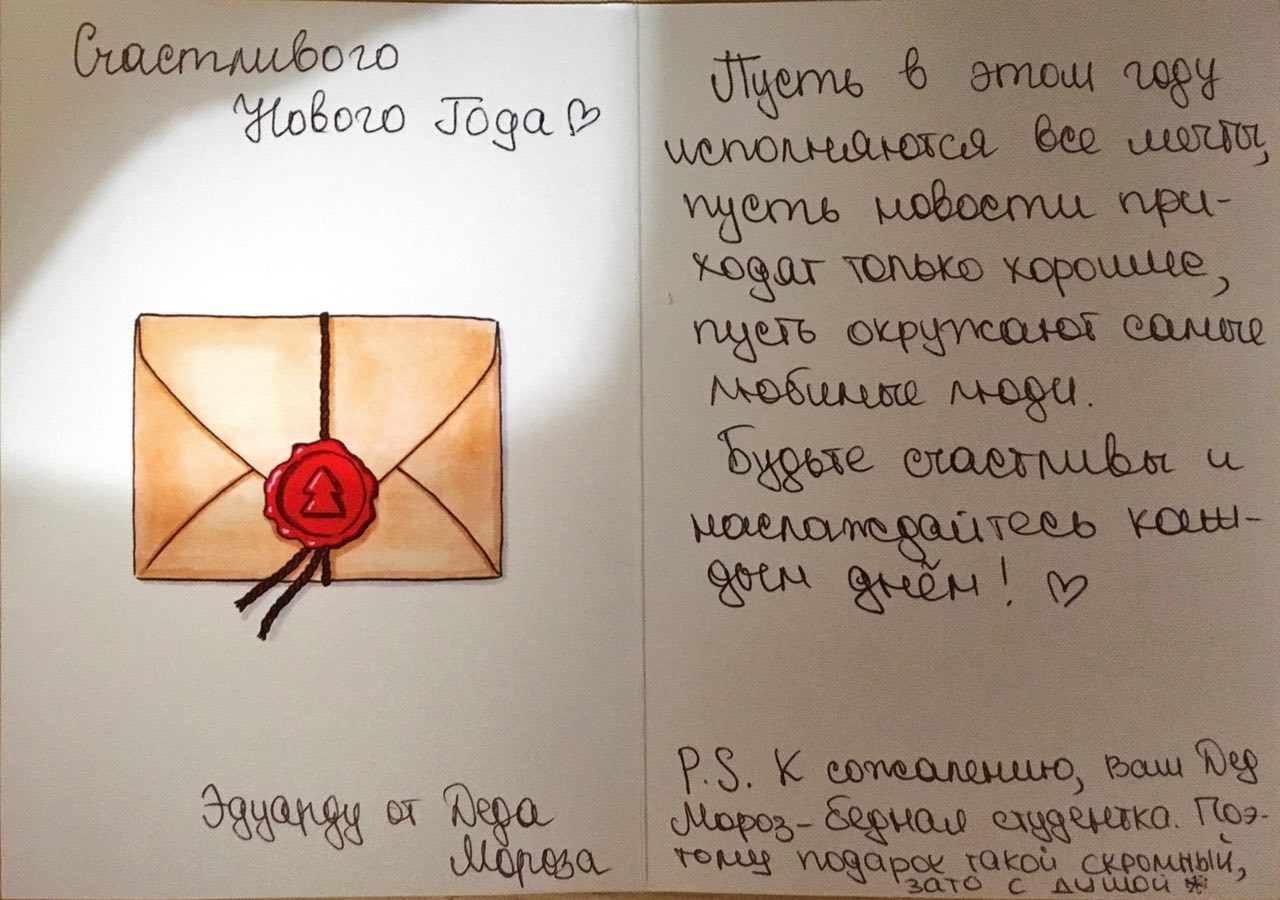 Счастливого
Нового Года ♡
Эдуарду от Деда
Мороза
Пусть в этом году
исполняются все мечты,
пусть новости при-
ходят только хорошие,
пусть окружают самые
любимые люди.
Будьте счастливы и
наслаждайтесь каж-
дым днём! ♡
P.S. К сожалению, ваш Дед
Мороз - бедная студентка. Поэ-
тому подарок такой скромный,
зато с душой *